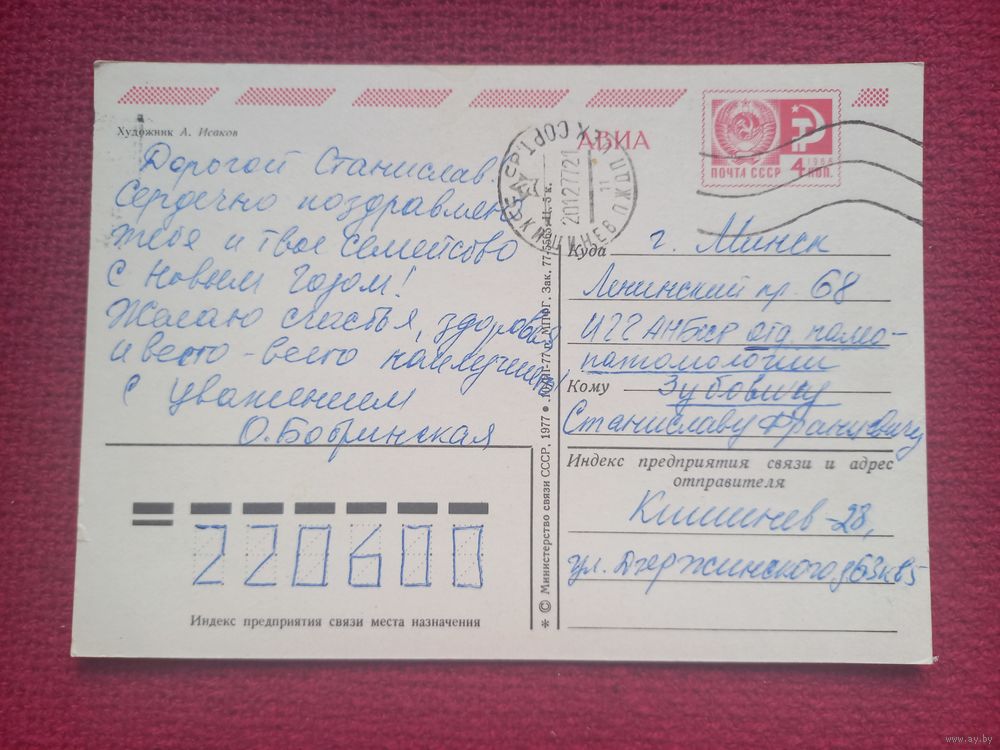 Художник А. Исаков
АВИА
ПОЧТА СССР
1966
4 КОП.
КИШИНЕВ
20127721
Дорогой Станислав!
Сердечно поздравляю
тебя и твое семейство
с новым годом!
Желаю счастья, здоровья
и всего-всего наилучшего
с уважением
О. Бобринская
Куда г. Минск
Ленинский пр. 68
ИГГ АН БССР отд палео-
патомологии
Кому Зубовичу
Станиславу Францевичу
Индекс предприятия связи и адрес
отправителя
Кишинев-28,
ул. Дзержинского д 63 кв 5
220600
Индекс предприятия связи места назначения
* © Министерство связи СССР, 1977
МПФГ. Зак. 77-
www.ay.by